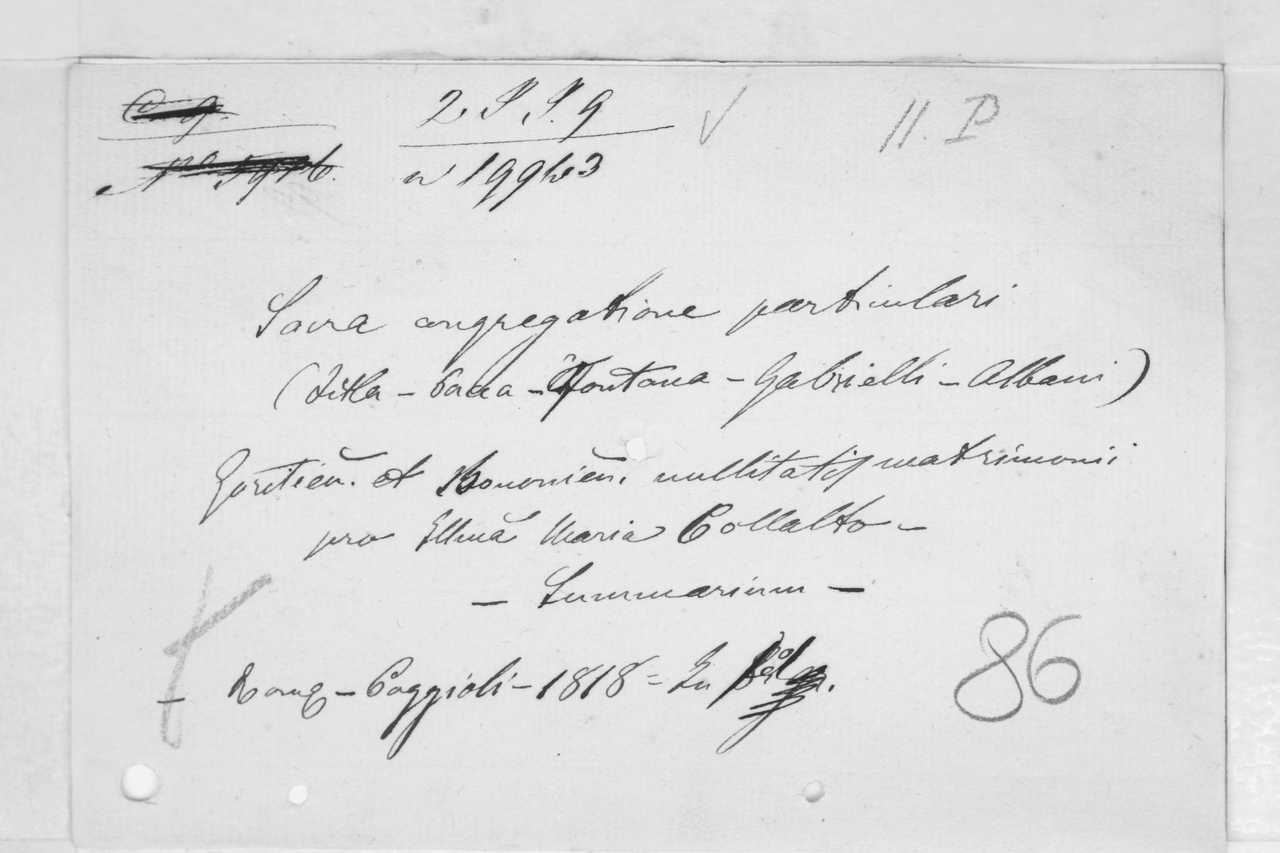 2 S S. 9
11. P
n 199423
Sacra congregatione particulari
(Litta - Pacca - Fontana - Gabrielli - Albani)
Goritień. et Bononień. nullitatis matrimonii
pro Illmã Maria Collalto -
- Summarium -
86
- Roma - Poggioli - 1818 = In